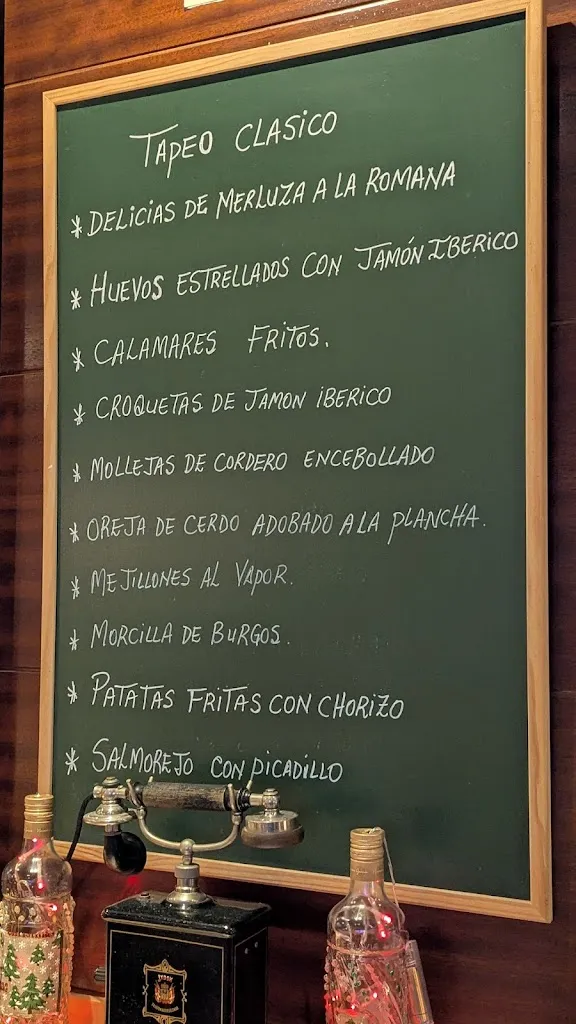 TAPEO CLASICO
* DELICIAS DE MERLUZA A LA ROMANA
* HUEVOS ESTRELLADOS CON JAMÓN IBERICO
* CALAMARES FRITOS.
* CROQUETAS DE JAMON IBERICO
* MOLLEJAS DE CORDERO ENCEBOLLADO
* OREJA DE CERDO ADOBADO A LA PLANCHA.
* MEJILLONES AL VAPOR.
* MORCILLA DE BURGOS.
* PATATAS FRITAS CON CHORIZO
* SALMOREJO CON PICADILLO